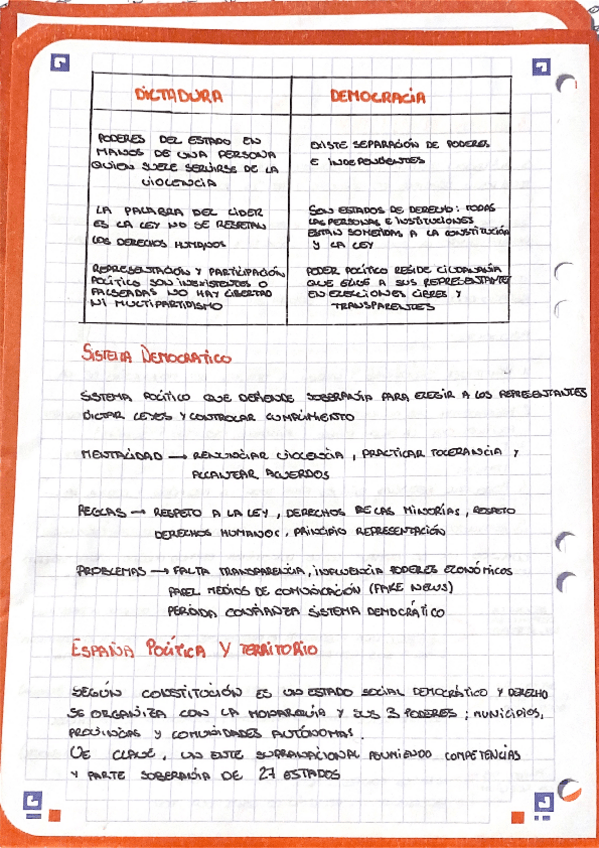 DICTADURA
DEMOCRACIA
PODERES DEL ESTADO EN
MANOS DE UNA PERSONA
QUIEN SUELE SERVIRSE DE LA
VIOLENCIA
EXISTE SEPARACIÓN DE PODERES
E INDEPENDIENTES
LA PALABRA DEL LIDER
ES LA LEY NO SE RESPETAN
LOS DERECHOS HUMANOS
SON ESTADOS DE DERECHO: TODAS
LAS PERSONAS E INSTITUCIONES
ESTÁN SOMETIDAS A LA CONSTITUCIÓN
Y LA LEY
REPRESENTACIÓN Y PARTICIPACIÓN
POLÍTICO SON INEXISTENTES O
FALSEADAS NO HAY LIBERTAD
NI MULTIPARTIDISMO
PODER POLÍTICO RESIDE CIUDADANÍA
QUE ELIGE A SUS REPRESENTANTE
EN ELECCIONES LIBRES Y
TRANSPARENTES
SISTEMA DEMOCRATICO
SISTEMA POLÍTICO QUE DEFIENDE SOBERANÍA PARA ELEGIR A LOS REPRESENTANTES
DICTAR LEYES Y CONTROLAR CUMPLIMIENTO
MENTALIDAD → RENUNCIAR VIOLENCIA, PRACTICAR TOLERANCIA Y
ALCANZAR ACUERDOS
REGLAS → RESPETO A LA LEY, DERECHOS DE LAS MINORÍAS, RESPETO
DERECHOS HUMANOS, PRINCIPIO REPRESENTACIÓN
PROBLEMAS → FALTA TRANSPARENCIA, INFLUENCIA PODERES ECONÓMICOS
PAPEL MEDIOS DE COMUNICACIÓN (FAKE NEWS)
PERDIDA CONFIANZA SISTEMA DEMOCRÁTICO
ESPAÑA POLÍTICA Y TERRITORIO
SEGÚN CONSTITUCIÓN ES UN ESTADO SOCIAL DEMOCRÁTICO Y DERECHO
SE ORGANIZA CON LA MONARQUÍA Y SUS 3 PODERES; MUNICIPIOS,
PROVINCIAS Y COMUNIDADES AUTÓNOMAS.
UE CLAVE, UN ENTE SUPRANACIONAL ASUMIENDO COMPETENCIAS
Y PARTE SOBERANÍA DE 27 ESTADOS